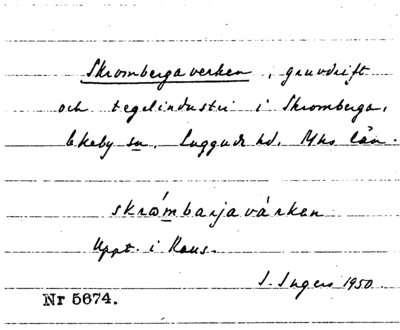 Skrombergaverken, gruvdrift
och tegelindustri i Skromberga,
Ekeby sn. Luggude hd. Mhs län.
skrómbarjavárken
Uppt. i Raus.
I. Ingers 1950.
Nr 5674.